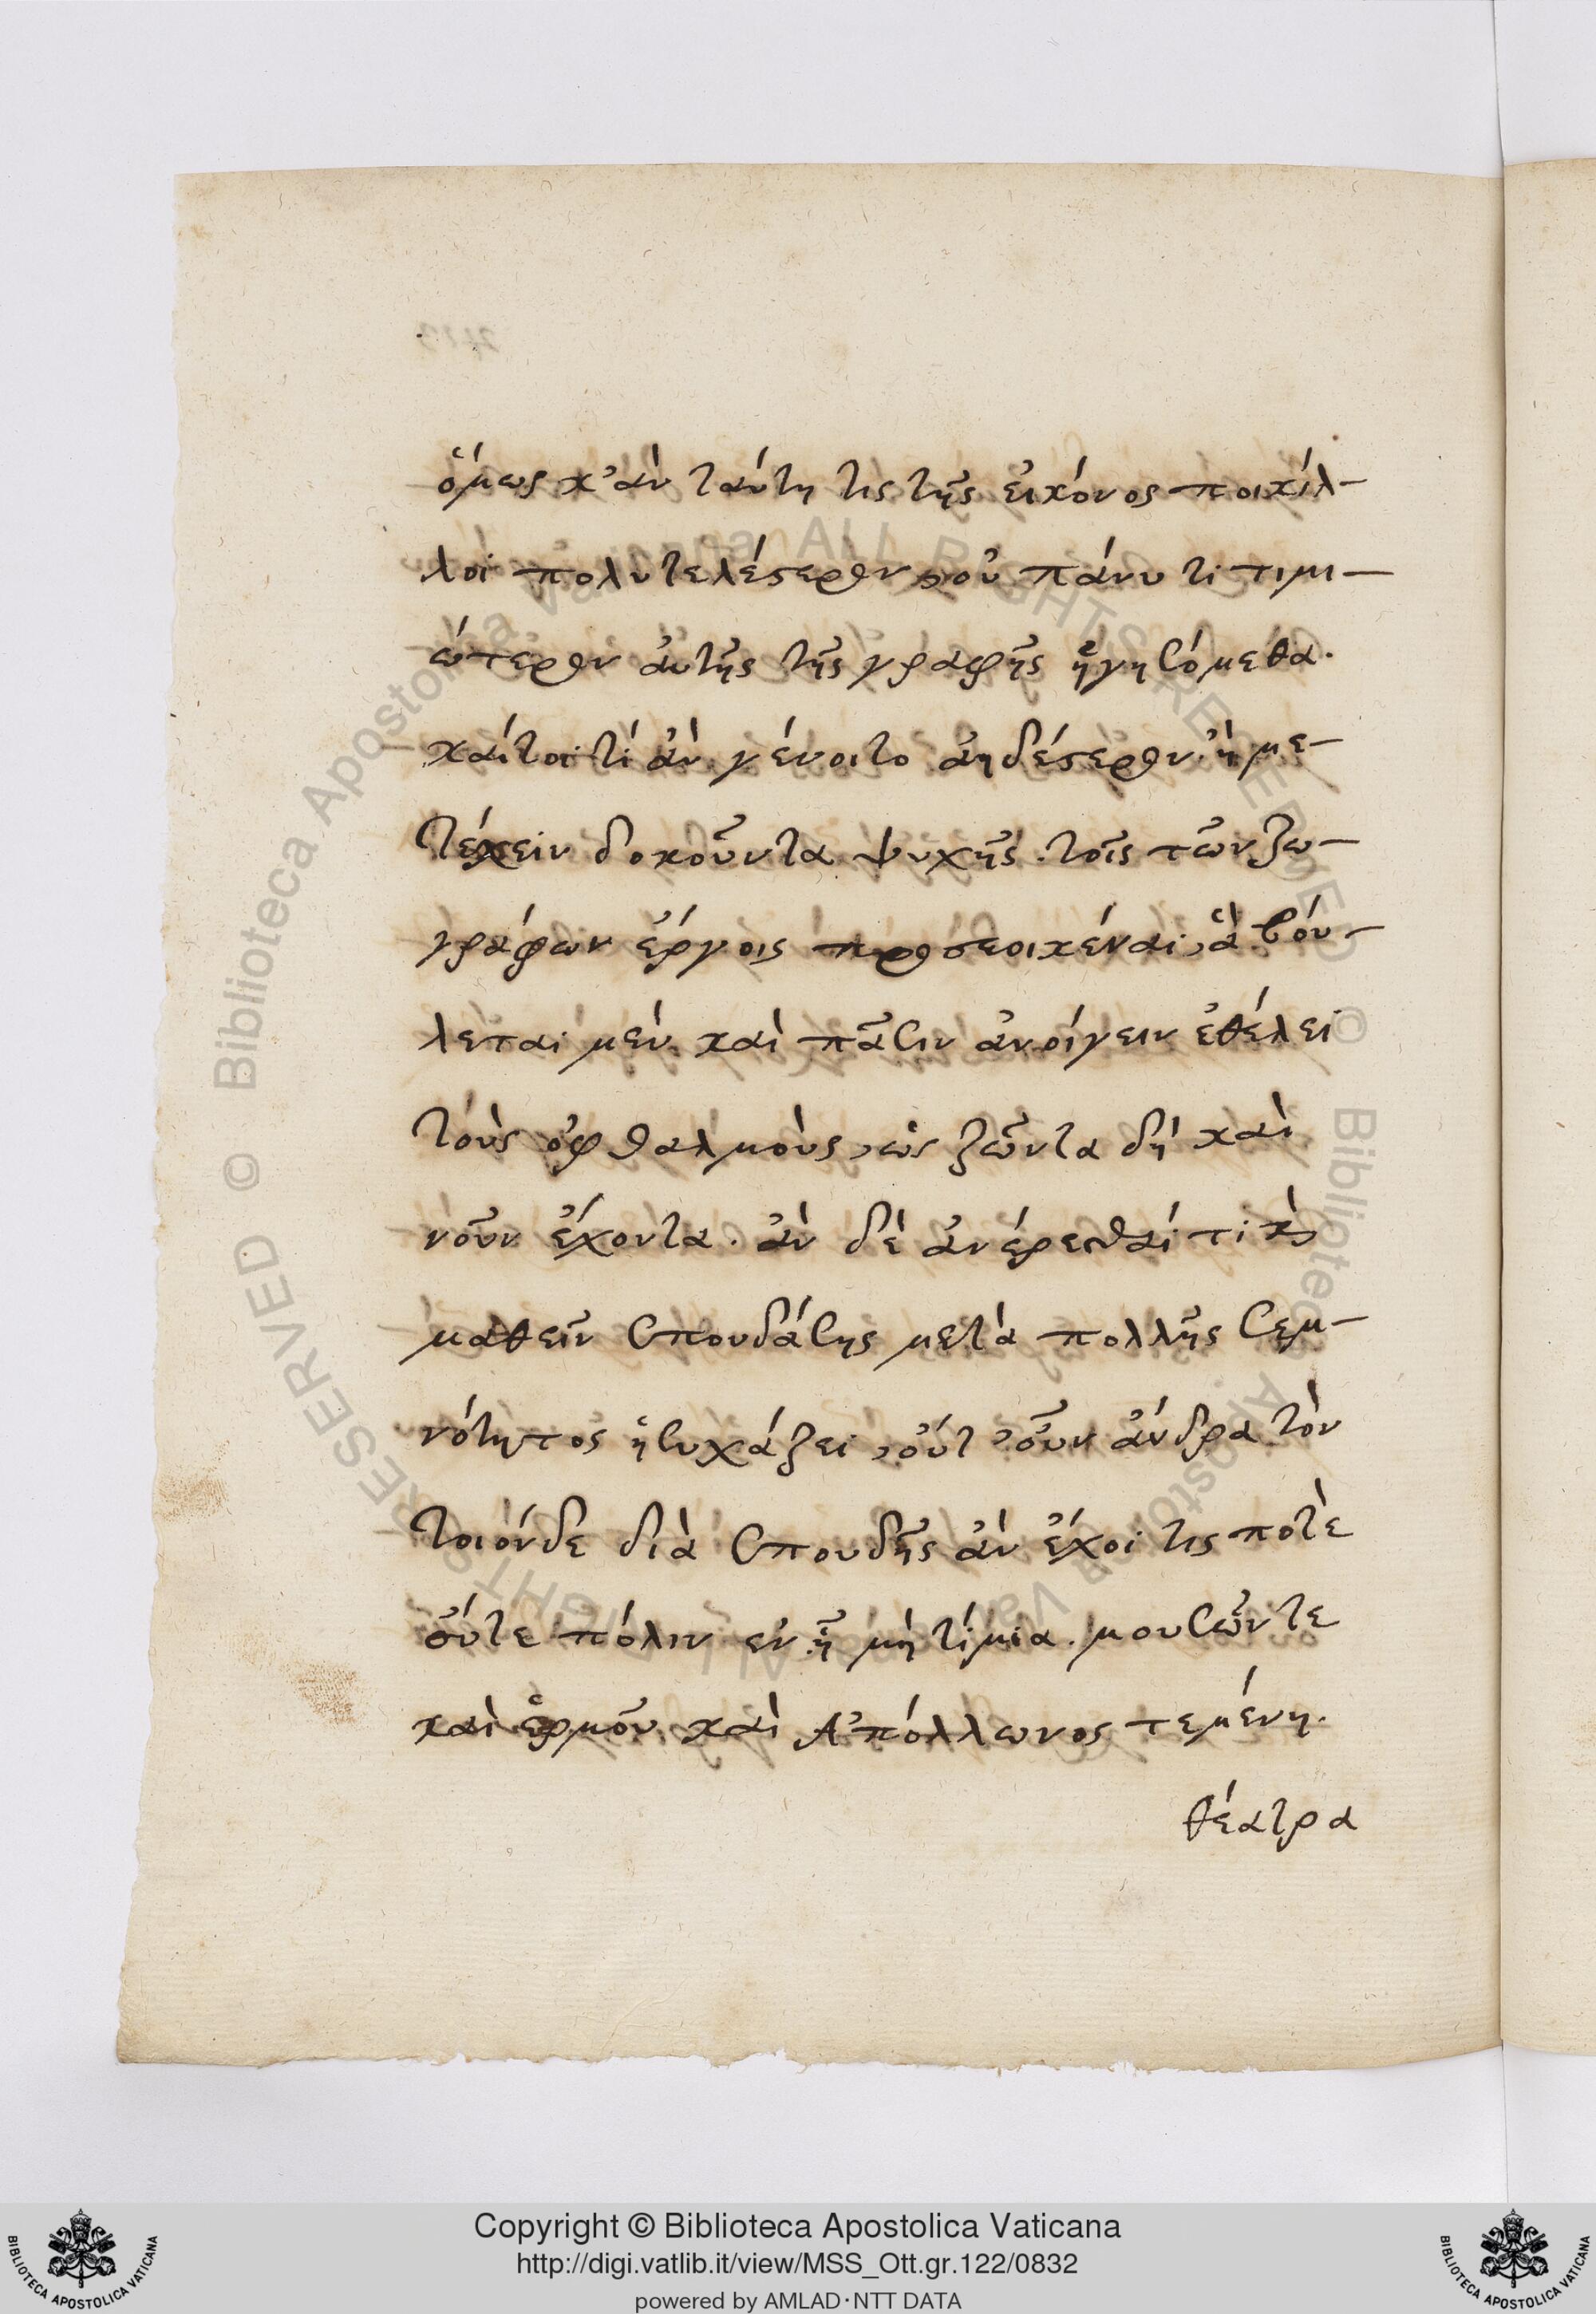 ὅμως κ'ἂν ταύτη τὶς τῆς εἰκόνος ποικίλ-
λοι πολυτελέστερον, οὐ πάνυ τὶ τιμι-
ώτερον ἀυτῆς τῆς γραφῆς ἡγησόμεθα.
καίτοι τί ἂν γένοιτο ἀηδέστερον. ἢ με-
τέχειν δοκοῦντα ψυχῆς. τοῖς τῶν ζω-
γράφων ἔργοις προσεοικέναι, ἃ βού-
λεται μὲν καὶ πᾶσιν ἀνοίγειν ἐθέλει
τοὺς ὀφθαλμοὺς, ὡς ζῶντα δή καὶ
νοῦν ἔχοντα. ἂν δὲ ἀνέρεσθαί τι κ̀
μαθεῖν σπουδάσης μετὰ πολλῆς σεμ-
νότητος ἡσυχάζει, οὔτ' οὖν ἄνδρα τὸν
τοιόνδε διὰ σπουδῆς ἂν ἔχοι τὶς ποτὲ
οὔτε πόλιν ἐν ᾗ μὴ τίμια. μουσῶν τε
καὶ ἑρμοῦ καὶ Ἀπόλλωνος τεμένη.
θέατρα
Copyright © Biblioteca Apostolica Vaticana
http://digi.vatlib.it/view/MSS_Ott.gr.122/0832
powered by AMLAD·NTT DATA
BIBLIOTECA APOSTOLICA VATICANA
BIBLIOTECA APOSTOLICA VATICANA
© Biblioteca Apostolica Vaticana ALL RIGHTS RESERVED
© Biblioteca Apostolica Vaticana ALL RIGHTS RESERVED